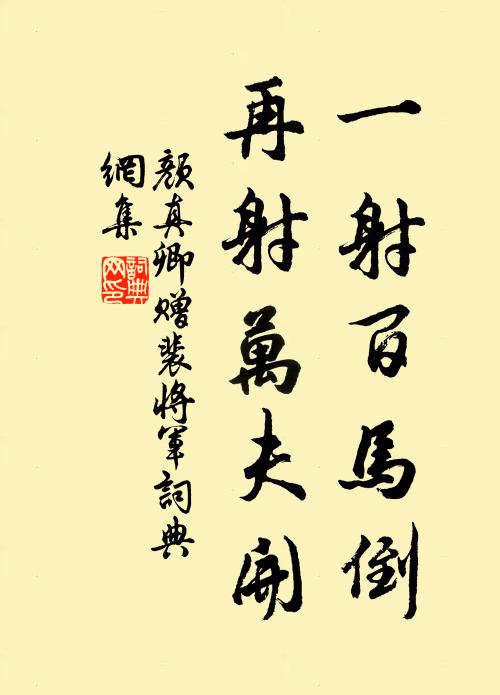 一射百馬倒
再射萬夫開
顏真卿贈裴將軍詞典
網集
詞典網印